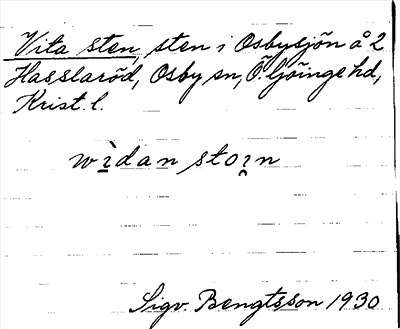 Vita sten, sten i Osbysjön å 2
Hasslaröd, Osby sn, Ö. Göinge hd,
Krist. l.
wìdan stoin
Sigv. Bengtsson 1930